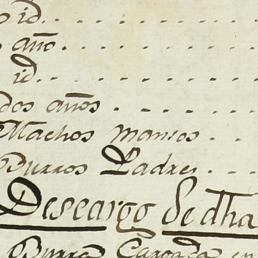 id.
año.
id.
dos años
Machos mansos
Burros Padres
Descargo de dha
Burra Cargada en